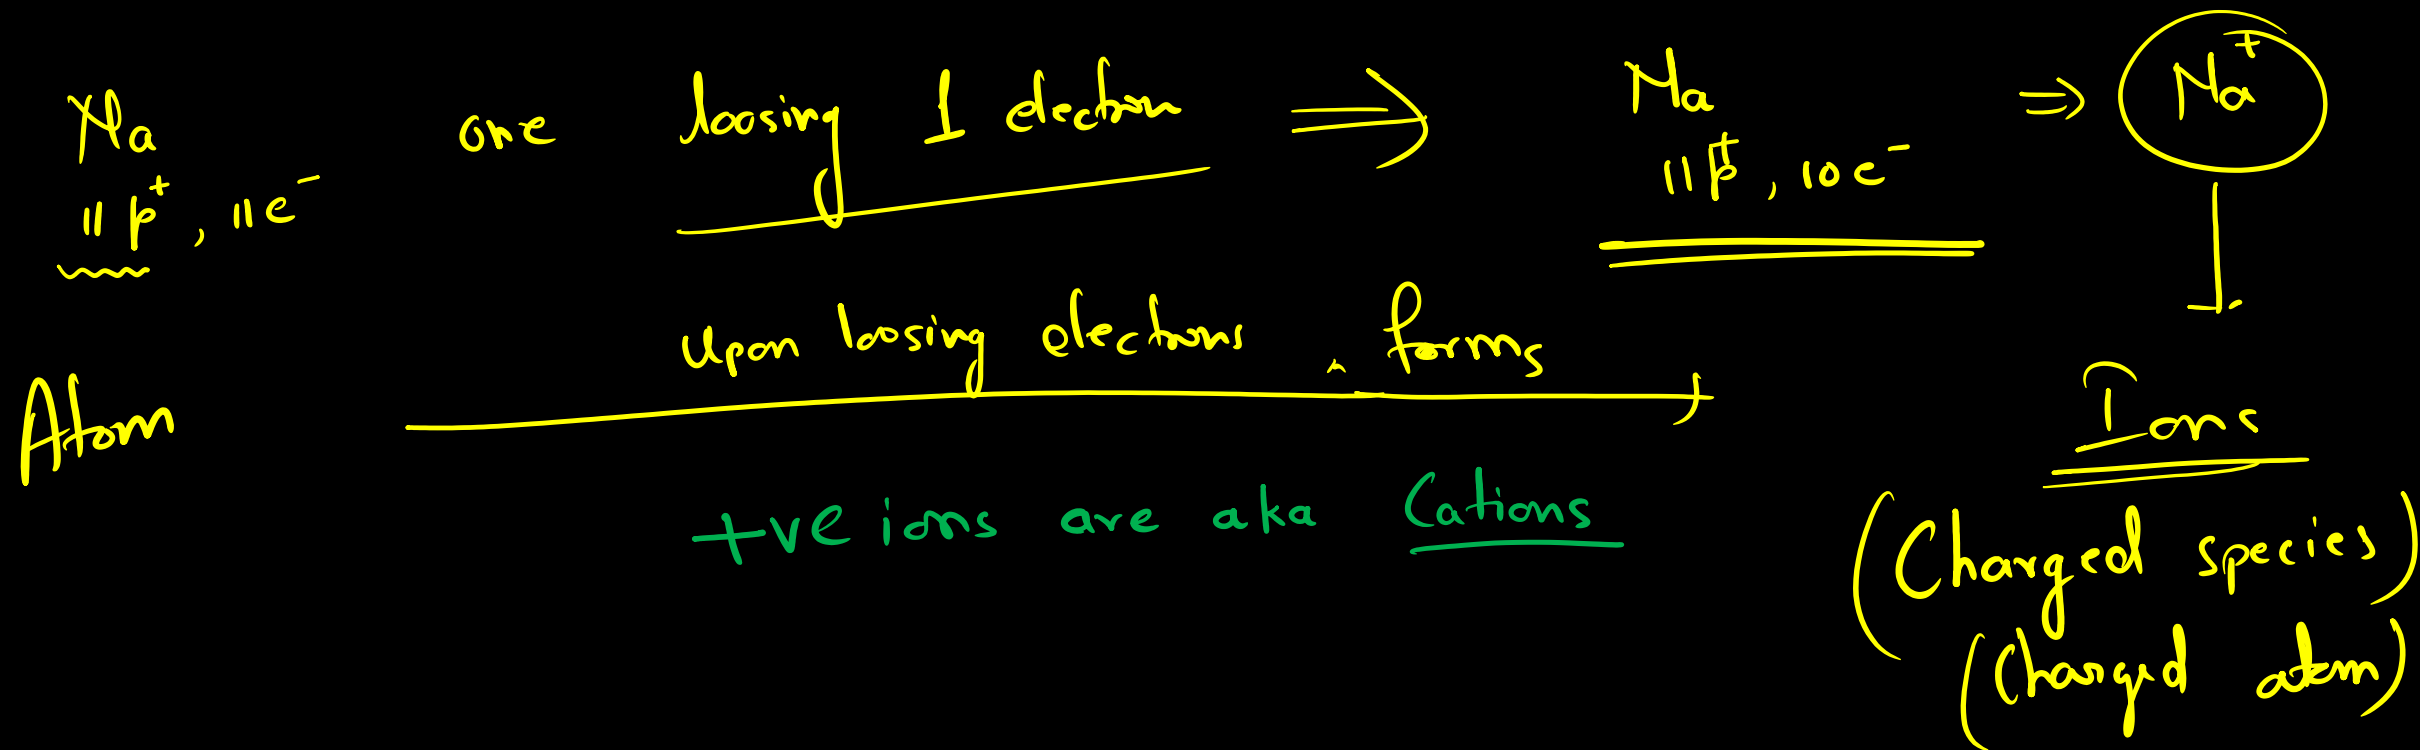 Na one loosing 1 electron ⇒ Na ⇒ Na⁺
11 p⁺, 11e⁻ 11p⁺, 10e⁻
upon loosing electrons, forms
Atom Ions
+ve ions are aka Cations
(Charged species)
(Charged atom)